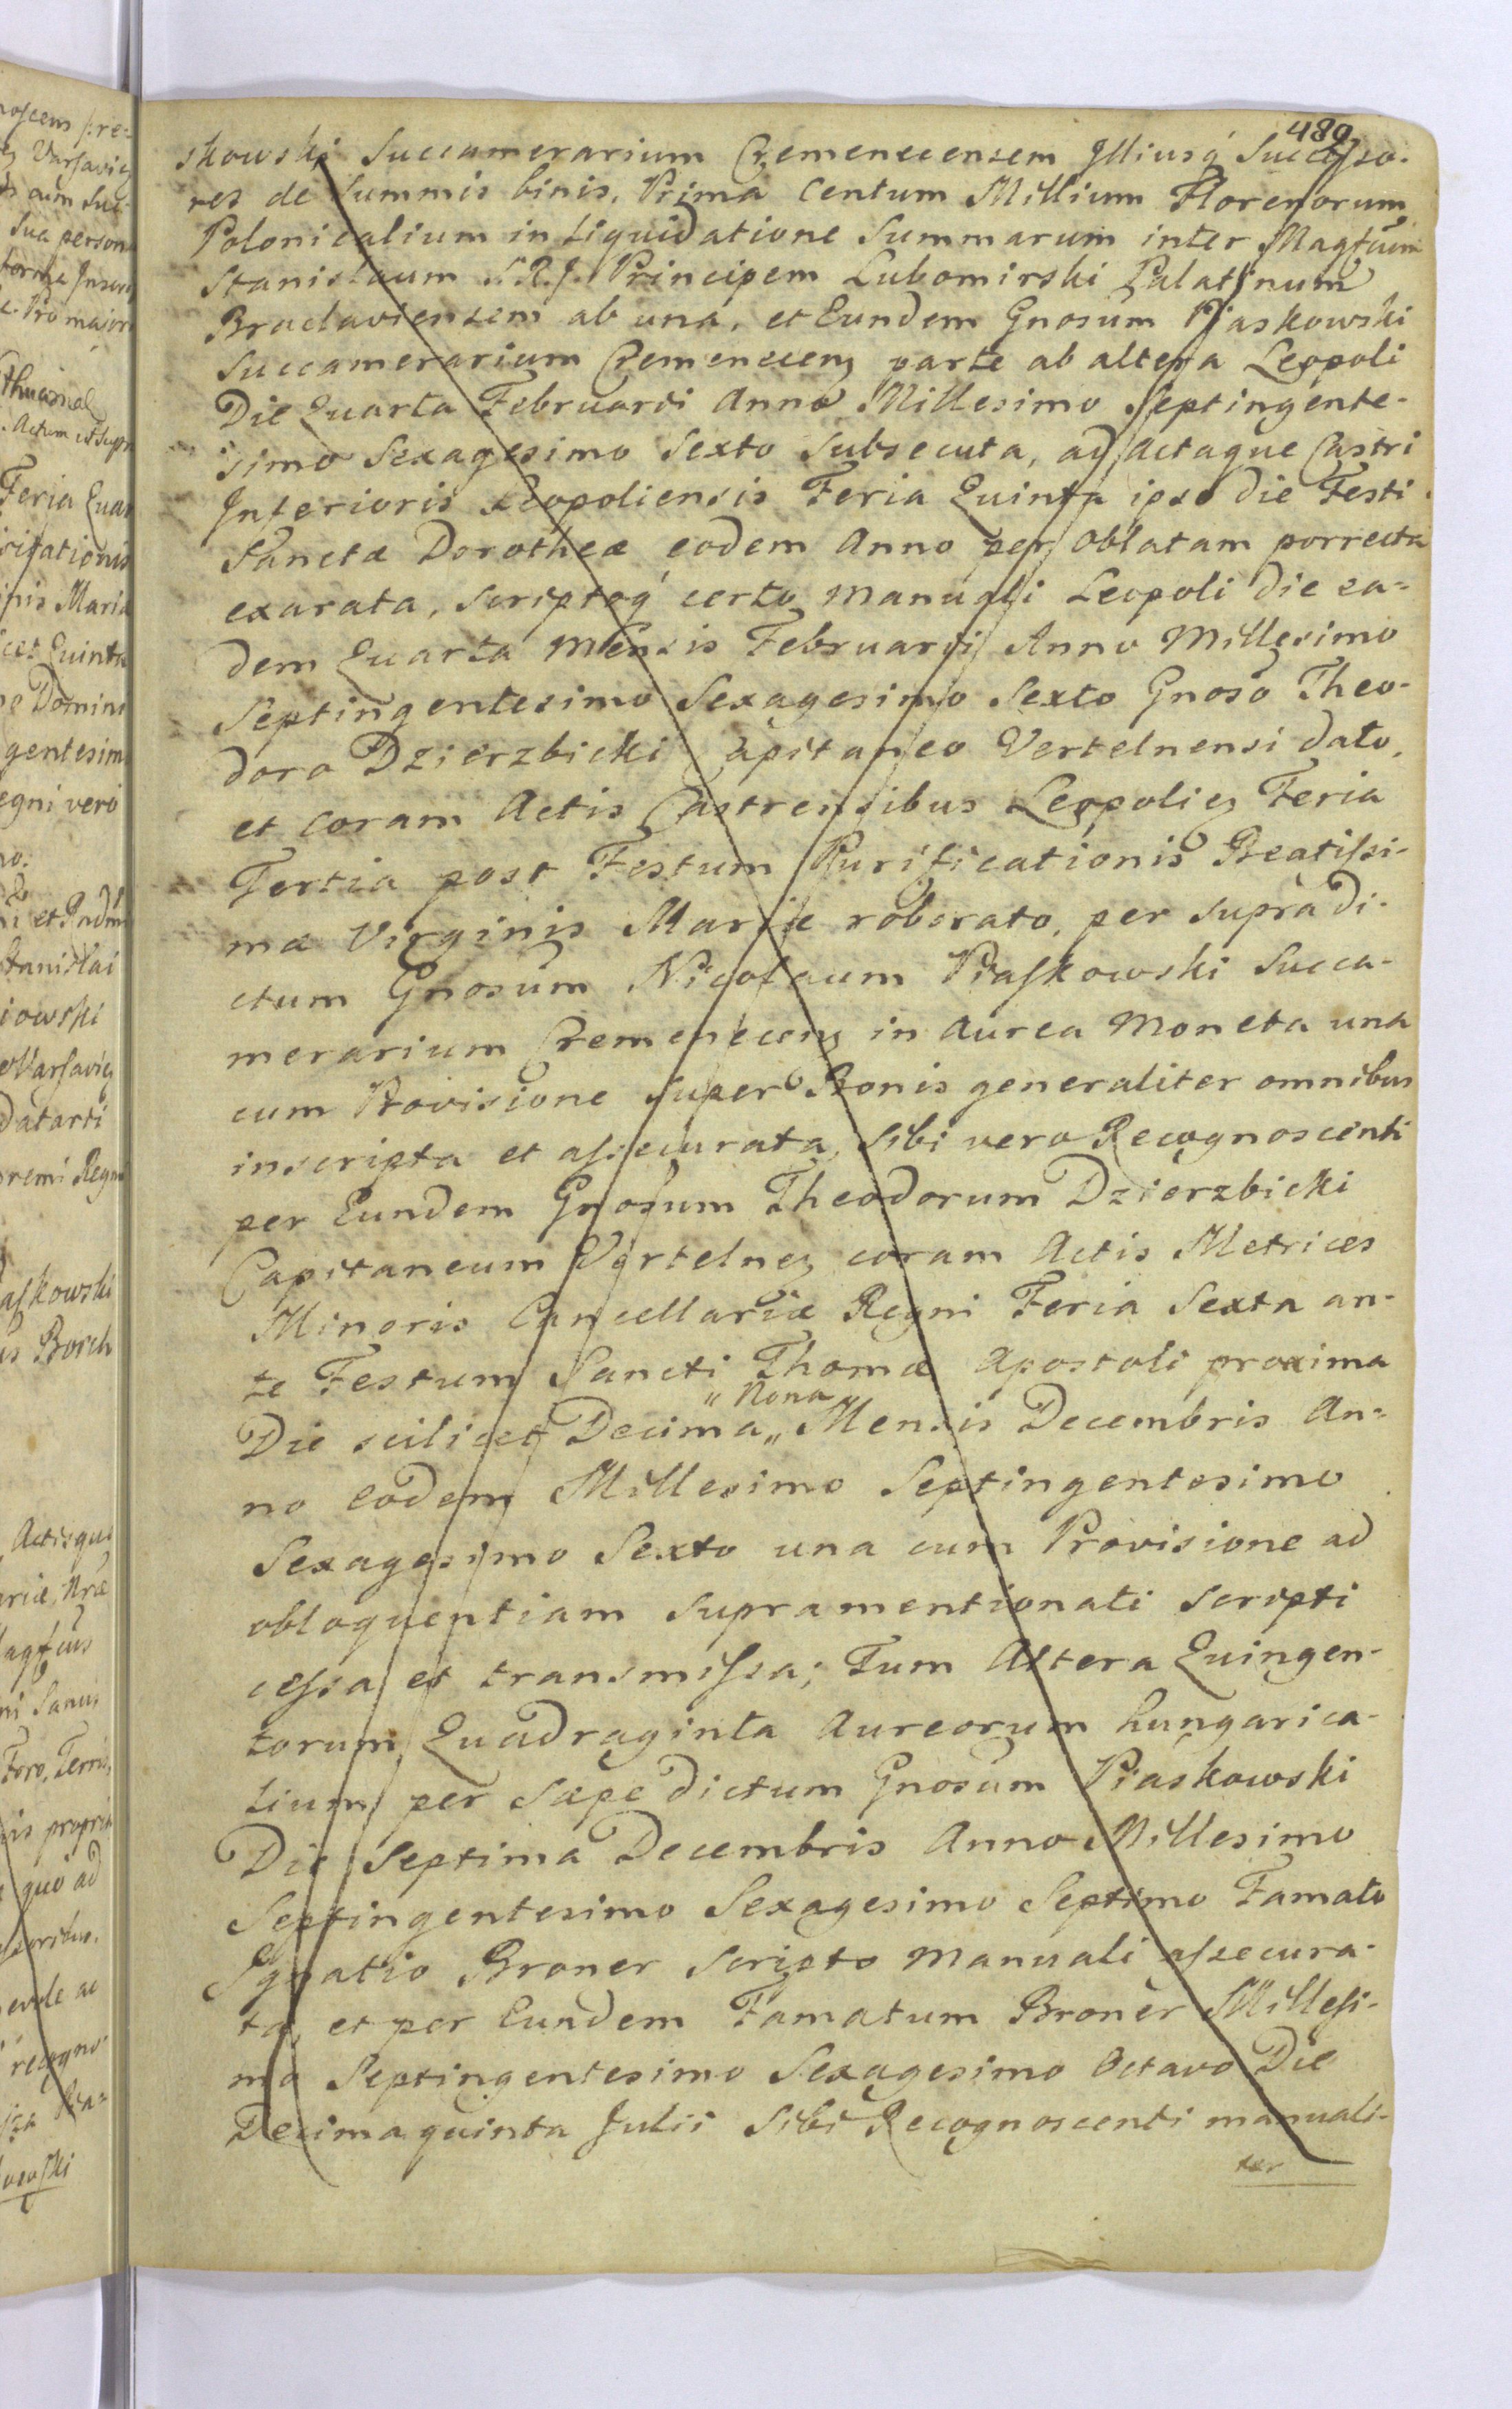 489
skowski Succamerarium Cremenecensem Illiusq́ Successo-
res de Summis binis, Prima Centum Millium Florenorum
Polonicalium in Liquidatione Summarum inter Magfcum
Stanislaum S.R.J. Principem Lubomirski Palatinum
Braclaviensem ab una, et Eundem Gnosum Piaskowski
Succamerarium Cremenecens parte ab altera Leopoli
Die Quarta Februarii Anno Millesimo Septingente-
simo Sexagesimo Sexto Subsecuta, ad Actaque Castri
Inferioris Leopoliensis Feria Quinta ipso die Festi
Sanctæ Dorotheæ eodem Anno per Oblatam porrecta
exarata, scriptoq́ certo Manuali Leopoli Die ea-
dem Quarta Mensis Februarii Anno Millesimo
Septingentesimo Sexagesimo Sexto Gnoso Theo-
doro Dzierzbicki Capitaneo Vertelnensi dato,
et coram Actis Castrensibus Leopolien Feria
Tertia post Festum Purificationis Beatissi-
mæ Virginis Mariæ roborato, per supra di-
ctum Gnosum Nicolaum Piaskowski Succa-
merarium Cremenecens in Aurea Moneta una
cum Provisione super Bonis generaliter omnibus
inscripta et assecurata, Sibi vero Recognoscenti
per Eundem Gnosum Theodorum Dzierzbicki
Capitaneum Verteln coram Actis Metrices
Minoris Cancellariæ Regni Feria Sexta an-
te Festum Sancti Thomæ Apostoli proxima
" Nona "
Die scilicet Decima " Mensis Decembris An-
no eodem Millesimo Septingentesimo
Sexagesimo Sexto una cum Provisione ad
obloquentiam supramentionati scripti
cessa et transmissa; Tum Altera Quingen-
torum Quadraginta Aureorum hungarica-
lium per sæpe dictum Gnosum Piaskowski
Die Septima Decembris Anno Millesimo
Septingentesimo Sexagesimo Septimo Famato
Ignatio Broner Scripto Manuali assecura-
ta, et per Eundem Famatum Broner Millesi-
mo Septingentesimo Sexagesimo Octavo Die
Decima quinta Julii Sibi Recognoscenti manuali-
ter